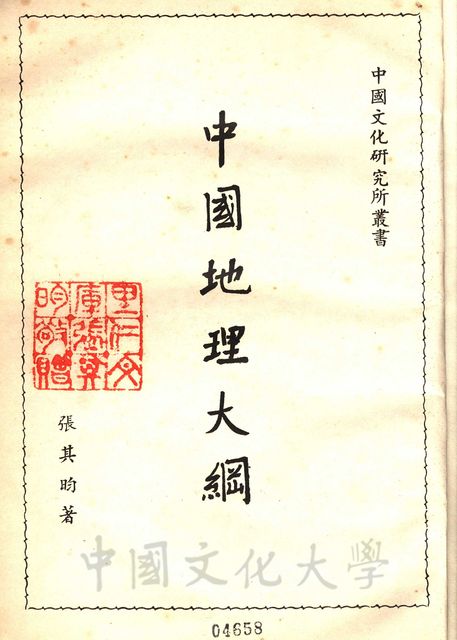 中國文化研究所叢書
中國地理大綱
張其昀著
中國文化大學
04658